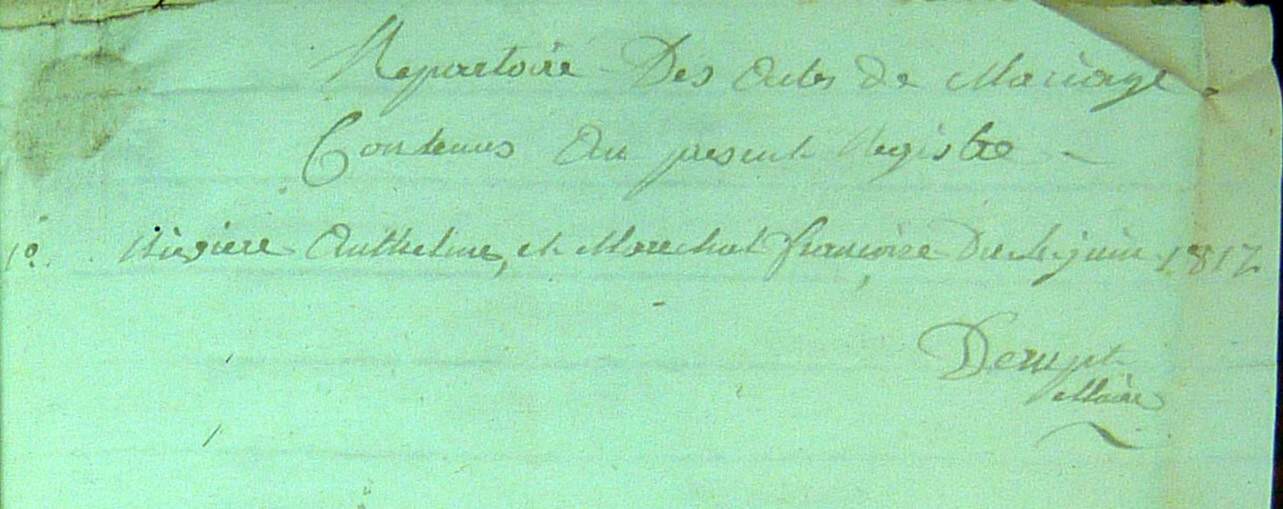 Repertoire Des Actes De Mariage
Contenus Au present Registre
1o. Anthelme, et Marechal françoise Du 4 juin 1817
Maire